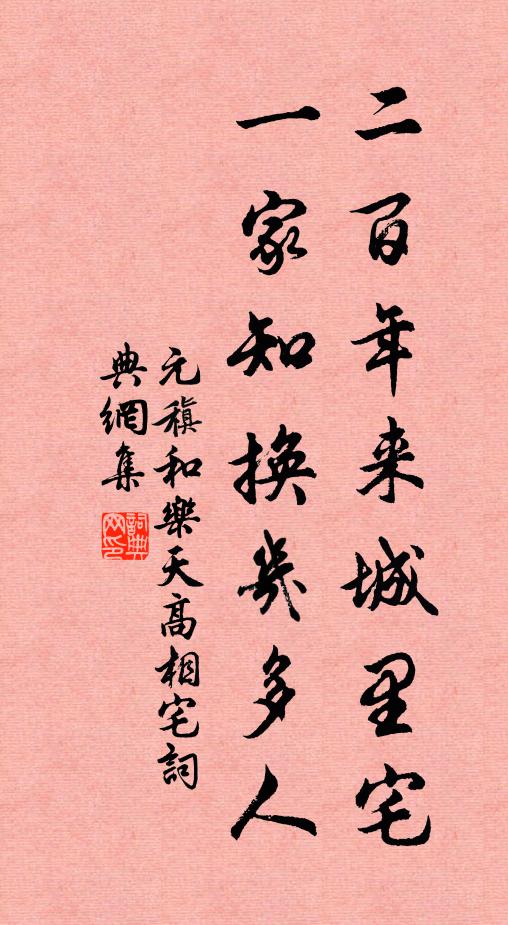 二百年来城里宅
一家知换几多人
元稹和樂天高相宅詞
典網集
詞典
网印